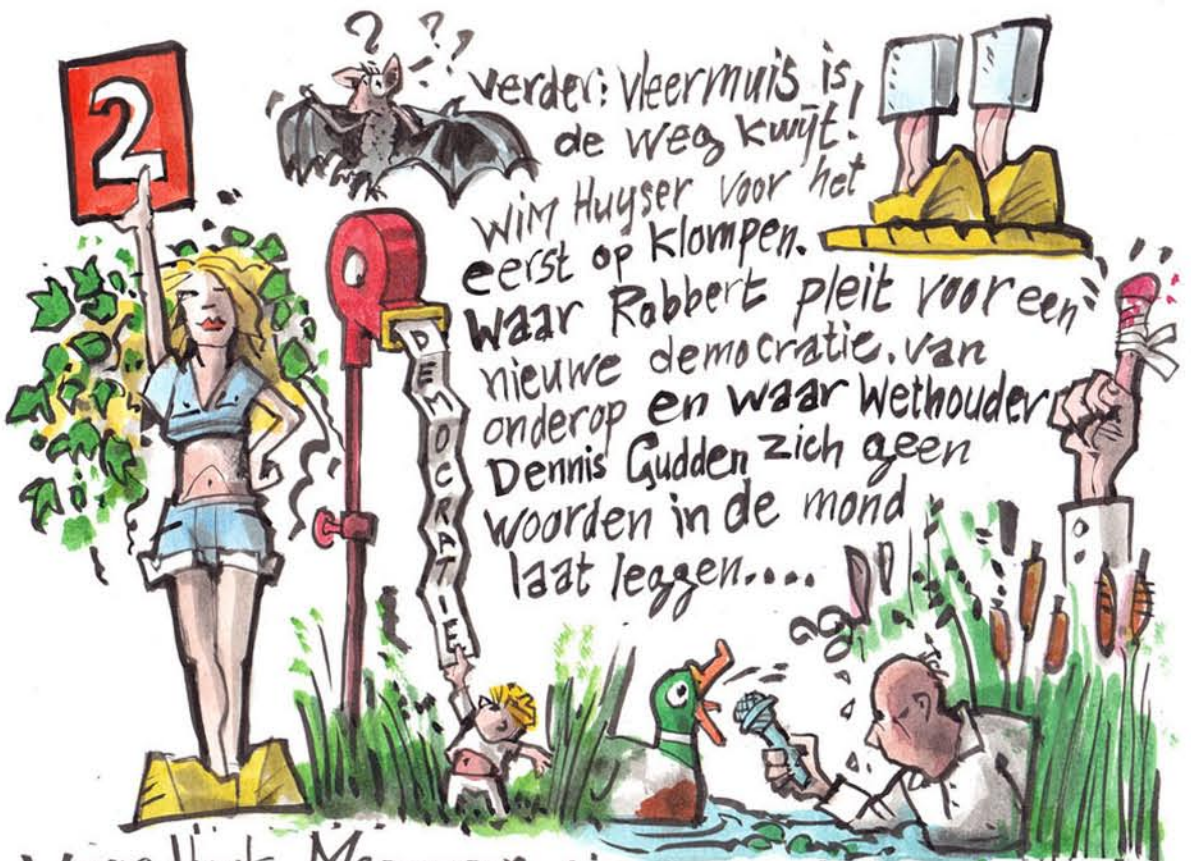 2
? ? ?
verder: vleermuis is
de weg kwijt!
Wim Huyser voor het
eerst op klompen.
waar Robbert pleit voor een
nieuwe democratie. van
onderop en waar Wethouder
Dennis Gudden zich geen
woorden in de mond
laat leggen....
DEMOCRATIE